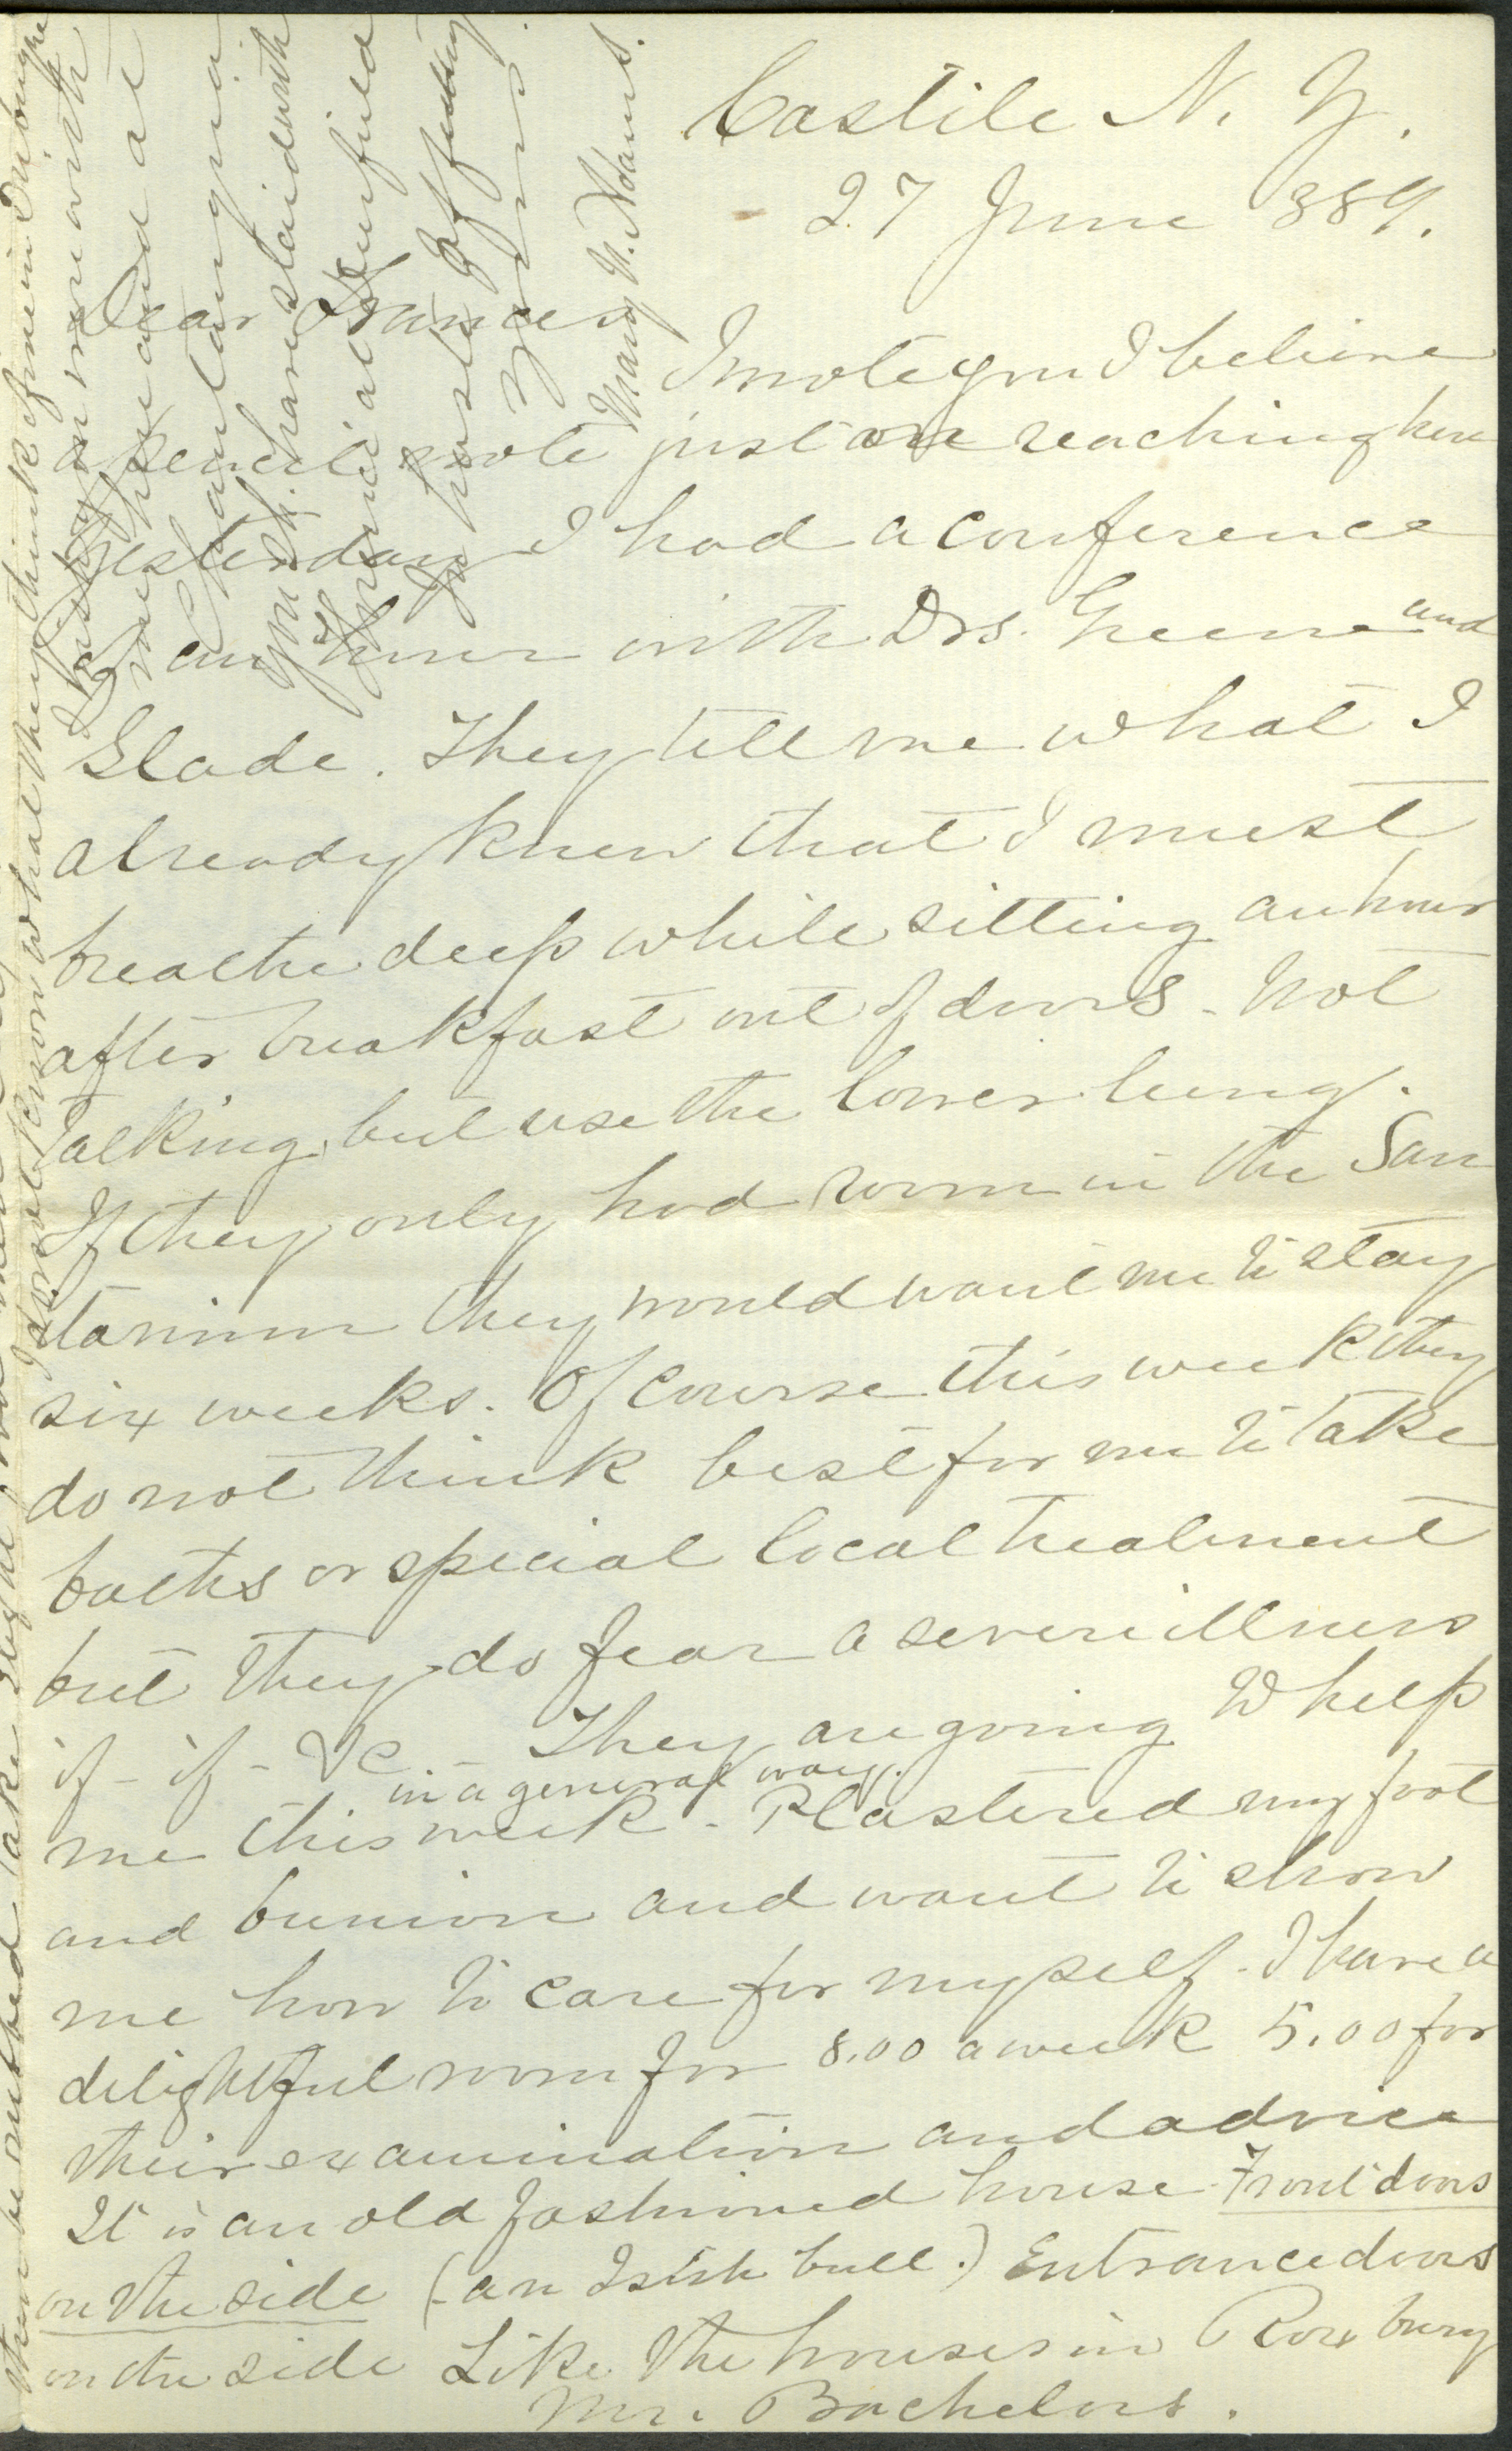 Castile N. Y.
27 June 889.
Dear Frances
I wrote you I believe
a pencil note just on reaching here
Yesterday I had a conference
of an hour with Drs. Greene and
Slade. They tell me what I
already knew that I must
breathe deep while sitting an hour
after breakfast out of doors - Not
talking, but use the lower lung.
If they only had room in the San
itarium they would want me to stay
six weeks. Of course this week they
do not think best for me to take
baths or special local treatment
but they do fear a severe illness
if - if - &c - They are going to help
in a general way.
me this week - Plastered my foot
and bunion and want to show
me how to care for myself - I have a
delightful room for 8.00 a week 5.00 for
their examination and advice
It is an old fashioned house Front doors
on the side (an Irish bull.) Entrance doors
on the side Like the houses in Roxbury
Mr. Bachelors.
I do not know what they think of me in Dubuque
I may on more with
me here and at
Chautauqua
you have staid with
friend at Deerfield
In haste affectiony
yours
Mary N. Adams.